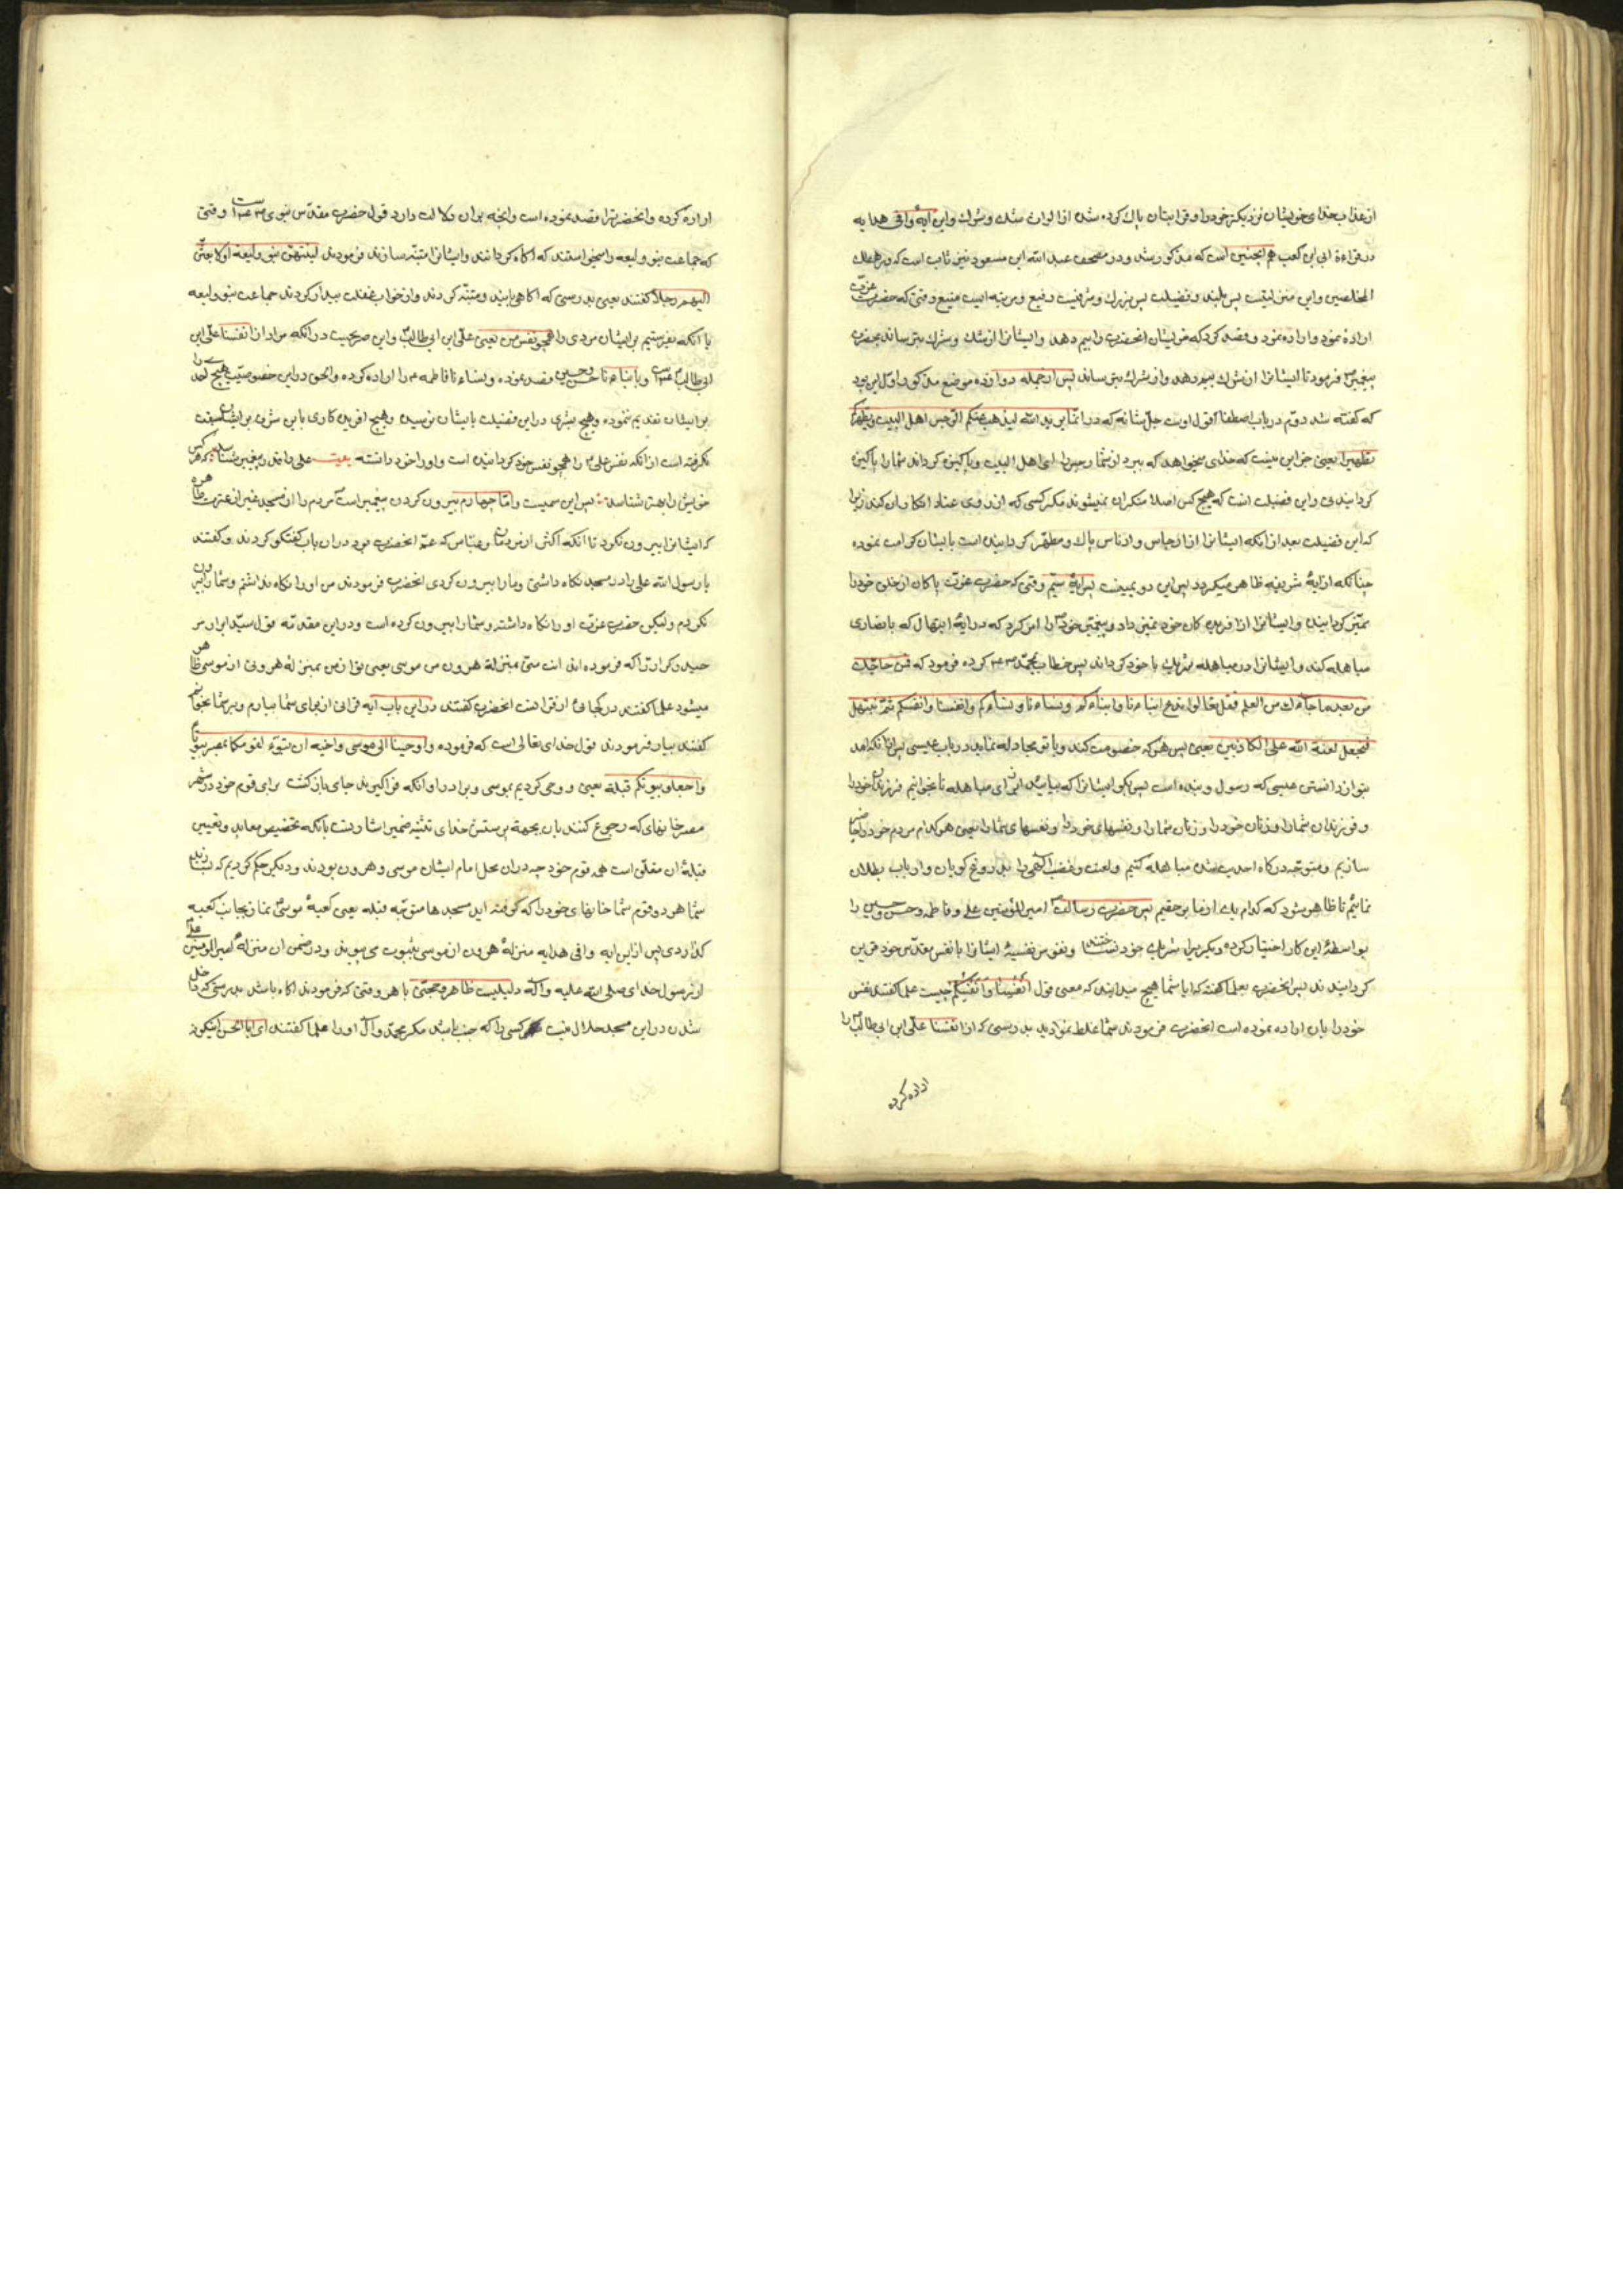 از عذاب خدای خویشان نزدیکتر خود را و قرابتان پاک کرده شده از الوان شک و شرک و این آیهٔ وافی هدایه
در قراءة ابی بن کعب هم اینچنین است که مذکور شد و در مصحف عبد الله ابن مسعود نیز ثابت است که و رهطک
المخلصین و این منزلیست بس بلند و فضیلت بس بزرک و شرفیست رفیع و مرتبه ایست منیع وقتی که حضرت عزت
اراده نمود و اراده نمود و قصد کرد که خویشان انحضرت را بیم دهد و ایشانرا از شک و شرک بترساند بحضرت
پیغمبر فرمود تا ایشانرا از شرک بیم دهد و از شرک بترساند پس از جمله دوازده موضع مذکور اول این بود
که گفته شد دویم در باب اصطفا قول اوست جل شانه که در انما یرید الله لیذهب عنکم الرجس اهل البیت و یطهرکم
تطهیرا یعنی جز این نیست که خدای میخواهد که ببرد از شما رجس را ای اهل البیت و پاکیزه کرداند شما را پاکیزه
کردانیدنی و این فضیلت انست که هیچ کس اصلا منکر ان نمیشوند مکر کسی که از روی عناد انکار ان کند زیرا
که این فضیلت بعد از انکه ایشانرا از ارجاس و ادناس پاک و مطهر کردانیده است بایشان کرامت نموده
چنانکه از آیهٔ شریفه ظاهر میکردد پس این دویمیست پس آیهٔ سیم وقتی که حضرت عزت پاکان از خلق خود را
تمیز کردانیده و ایشانرا از افریده کان خود تمیز داد و پیغمبر خود را امر کرد که در آیهٔ ابتهال که با نصاری
مباهله کند و ایشانرا در مباهله شریک با خود کرداند پس خطاب بمحمد کرده فرمود که فمن حاجک
من بعد ما جاءک من العلم فقل تعالوا ندع ابناءنا و ابناءکم و نساءنا و نساءکم و انفسنا و انفسکم ثم نبتهل
فنجعل لعنة الله علی الکاذبین یعنی پس هر که خصومت کند و با تو مجادله نماید در باب عیسی پس از انکه امد
بتو از دانستن عیسی که رسول و بنده است پس بکو ایشانرا که بیایید از برای مباهله تا بخوانیم فرزندان خود را
و فرزندان شما را و زنان خود را و زنان شما را و نفسهای خود را و نفسهای شما را یعنی هر کدام مردم خود را حاضر
سازیم و متوجه درکاه احدیت شده مباهله کنیم و لعنت و غضب الهی را بدروغ کویان و ارباب بطلان
نمائیم تا ظاهر شود که کدام یک از ما بر حقیم پس حضرت رسالت امیر المؤمنین علی و فاطمه و حسن و حسین را
بواسطهٔ این کار اختیار کرده و دیکریرا شریک خود نساختند و نفوس نفسیهٔ ایشانرا با نفس مقدس خود قرین
کردانیدند پس انحضرت بعلما گفتند که ایا شما هیچ میدانید که معنی قول انفسنا و انفسکم چیست علما گفتند نفس
خود را بان اراده نموده است انحضرت فرمودند شما غلط نمودید بدرستی که از انفسنا علی ابن ابی طالب را
اراده کرده
اراده کرده و انحضرترا قصد نموده است و انچه بر ان دلالت دارد قول حضرت مقدس نبوی است وقتی
که جماعت بنو ولیعه را میخواستند که اکاه کردانند و ایشانرا متنبه سازند فرمودند لینتهین بنو ولیعه او لابعثن
الیهم رجلا کنفسی یعنی بدرستی که اکاهی یابند و متنبه کردند و از خواب غفلت بیدار کردند جماعت بنو ولیعه
یا انکه بفرستیم بر ایشان مردی را همچو نفس من یعنی علی ابن ابی طالب و این صریحیست در انکه مراد از انفسنا علی ابن
ابی طالب است و بابناءنا حسن و حسین قصد نموده و بنساءنا فاطمه را اراده کرده و الحق در این خصوصیت هیچ احدی را
بر ایشان تقدیم ننموده و هیچ بشری در این فضیلت بایشان نرسیده و هیچ افریده کاری باین شرف بر ایشان سبقت
نکرفته است از انکه نفس علی را همچو نفس خود کردانیده است و او را خود دانسته بیت علی داند و پیغمبر شناسد که هر کس
خویش را بهتر شناسد پس این سیمیست و اما چهارم بیرون کردن پیغمبر است مردم را از مسجد غیر از عترت طاهره
که ایشانرا بیرون نکرد تا انکه اکثر از مردمان و عباس که عم انحضرت بود در ان باب گفتکو کردند و گفتند
یا رسول الله علی را در مسجد نکاه داشتی و ما را بیرون کردی انحضرت فرمودند من او را نکاه نداشتم و شما را بیرون
نکردم و لیکن حضرت عزت او را نکاه داشته و شما را بیرون کرده است و در این مقدمه قول سید ابرار مر
حیدر کرار را که فرموده اند انت منی بمنزلة هرون من موسی یعنی تو از من بمنزلهٔ هرونی از موسی ظاهر
میشود علما گفتند در کجائی از قران است انحضرت گفتند در این باب آیه قرانی از برای شما بیارم و بر شما بخوانم
گفتند بیار فرمودند قول خدای تعالی است که فرموده و اوحینا الی موسی و اخیه ان تبوّء لقومکما بمصر بیوتا
و اجعلوا بیوتکم قبلة یعنی و وحی کردیم بموسی و برادر او انکه فرا کیرید جای باز کشت برای قوم خود در شهر
مصر خانهای که رجوع کنند بان بجهة پرستش خدای تثنیه ضمیر اشارتست بانکه تخصیص معابد و تعیین
قبلهٔ ان متعلق است همه قوم خود چه در ان محل امام ایشان موسی و هرون بودند و دیکر حکم کردیم که بسازند
شما هر دو قوم شما خانهای خود را که کرفته اید مسجدها متوجه قبله یعنی کعبهٔ موسی نماز بجانب کعبه
کذاردی پس از این آیه وافی هدایه منزلهٔ هرون از موسی بثبوت می پیوندد و در ضمن ان منزلهٔ امیر المؤمنین علی
از رسول خدای صلی الله علیه و آله دلیلیست ظاهر و حجتی باهر وقتی که فرمودند اکاه باشید بدرستی که داخل
شدن در این مسجد حلال نیست کسی را که جنب باشد مکر محمد و آل او را علما گفتند ای ابا الحسن اینکونه